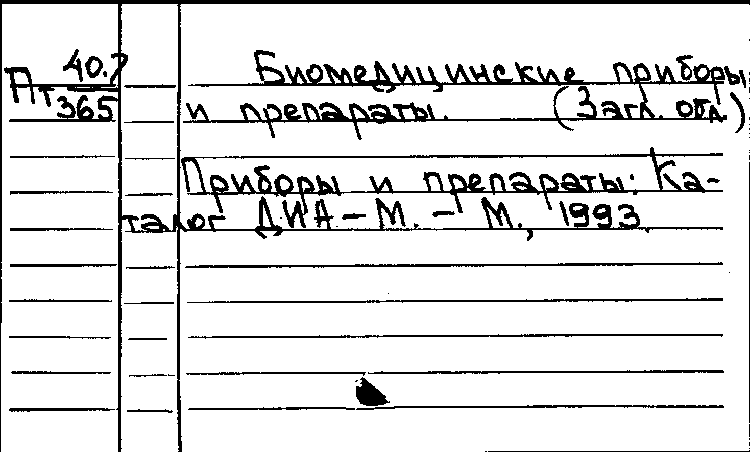 Пт 40.7
365
Биомедицинские приборы
и препараты. (Загл. обл.)
Приборы и препараты: Ка-
талог ДИА-М. - М., 1993.